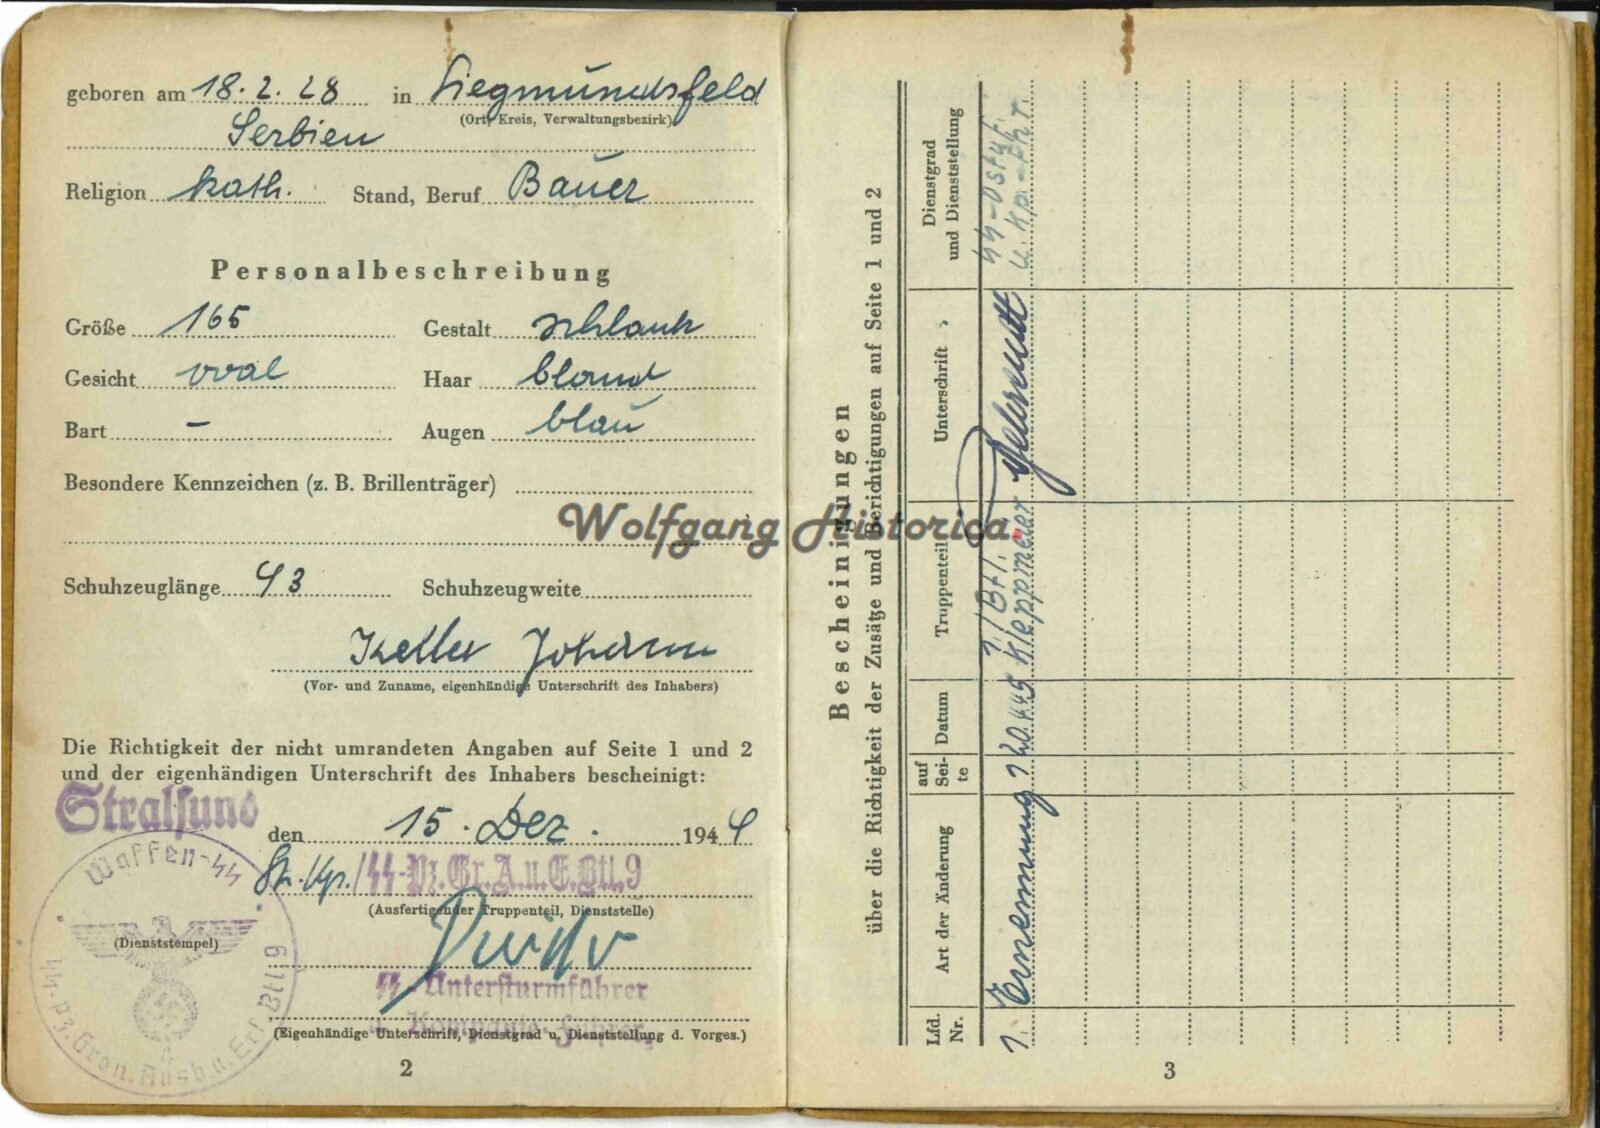 geboren am 18.2.28 in Siegmundsfeld
(Ort, Kreis, Verwaltungsbezirk)
Serbien
Religion kath. Stand, Beruf Bauer
Personalbeschreibung
Größe 165 Gestalt schlank
Gesicht oval Haar blond
Bart – Augen blau
Besondere Kennzeichen (z. B. Brillenträger)
Schuhzeuglänge 43 Schuhzeugweite
Keller Johann
(Vor- und Zuname, eigenhändige Unterschrift des Inhabers)
Die Richtigkeit der nicht umrandeten Angaben auf Seite 1 und 2
und der eigenhändigen Unterschrift des Inhabers bescheinigt:
Stralsund den 15. Dez. 1944
St. Kp./SS-Pz.Gr.A.u.E.Btl.9
(Ausfertigender Truppenteil, Dienststelle)
Waffen-SS
SS-Pz.Gren.Ausb.u.Ers.Btl.9
(Dienststempel)
SS-Untersturmführer
u. Kompanie-Führer
(Eigenhändige Unterschrift, Dienstgrad u. Dienststellung d. Vorges.)
2
Wolfgang Historica
Bescheinigungen
über die Richtigkeit der Zusätze und Berichtigungen auf Seite 1 und 2
Lfd. Nr.
Art der Änderung
auf Sei-te
Datum
Truppenteil
Unterschrift
Dienstgrad und Dienststellung
1. Ernennung 1 20.4.45 1./Btl. Kleppmeier SS-Ostuf. u. Kp.-Fhr.
3